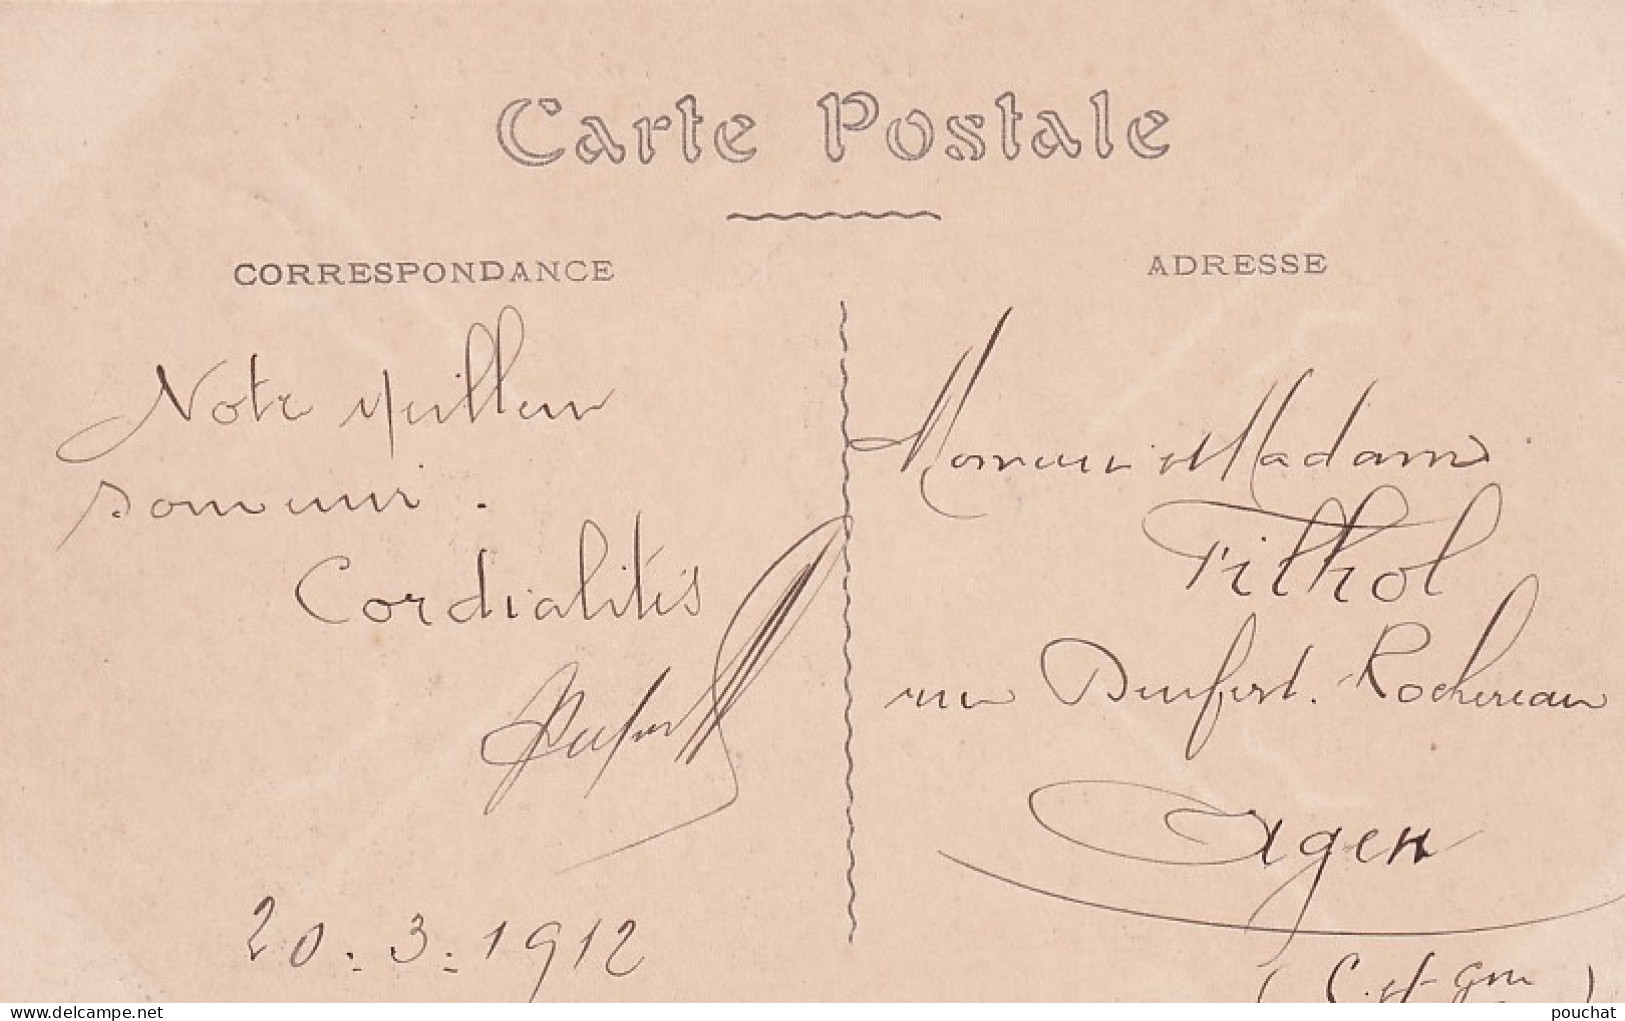 Carte Postale
CORRESPONDANCE
Notre meilleur
souvenir.
Cordialités
20.3.1912
ADRESSE
Monsieur et Madame
Filhol
rue Denfert-Rochereau
Agen
(L. et Gne)
delcampe.net
pouchat